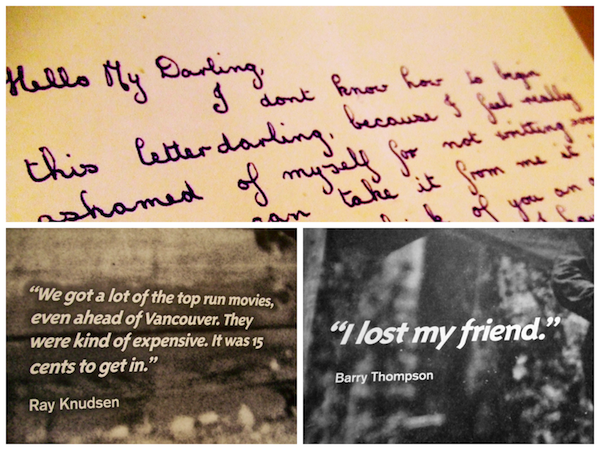 Hello My Darling,
I dont know how to begin
this letter darling, because I feel really
ashamed of myself for not writing
can take it from me it
of you an
“We got a lot of the top run movies,
even ahead of Vancouver. They
were kind of expensive. It was 15
cents to get in.”
Ray Knudsen
“I lost my friend.”
Barry Thompson